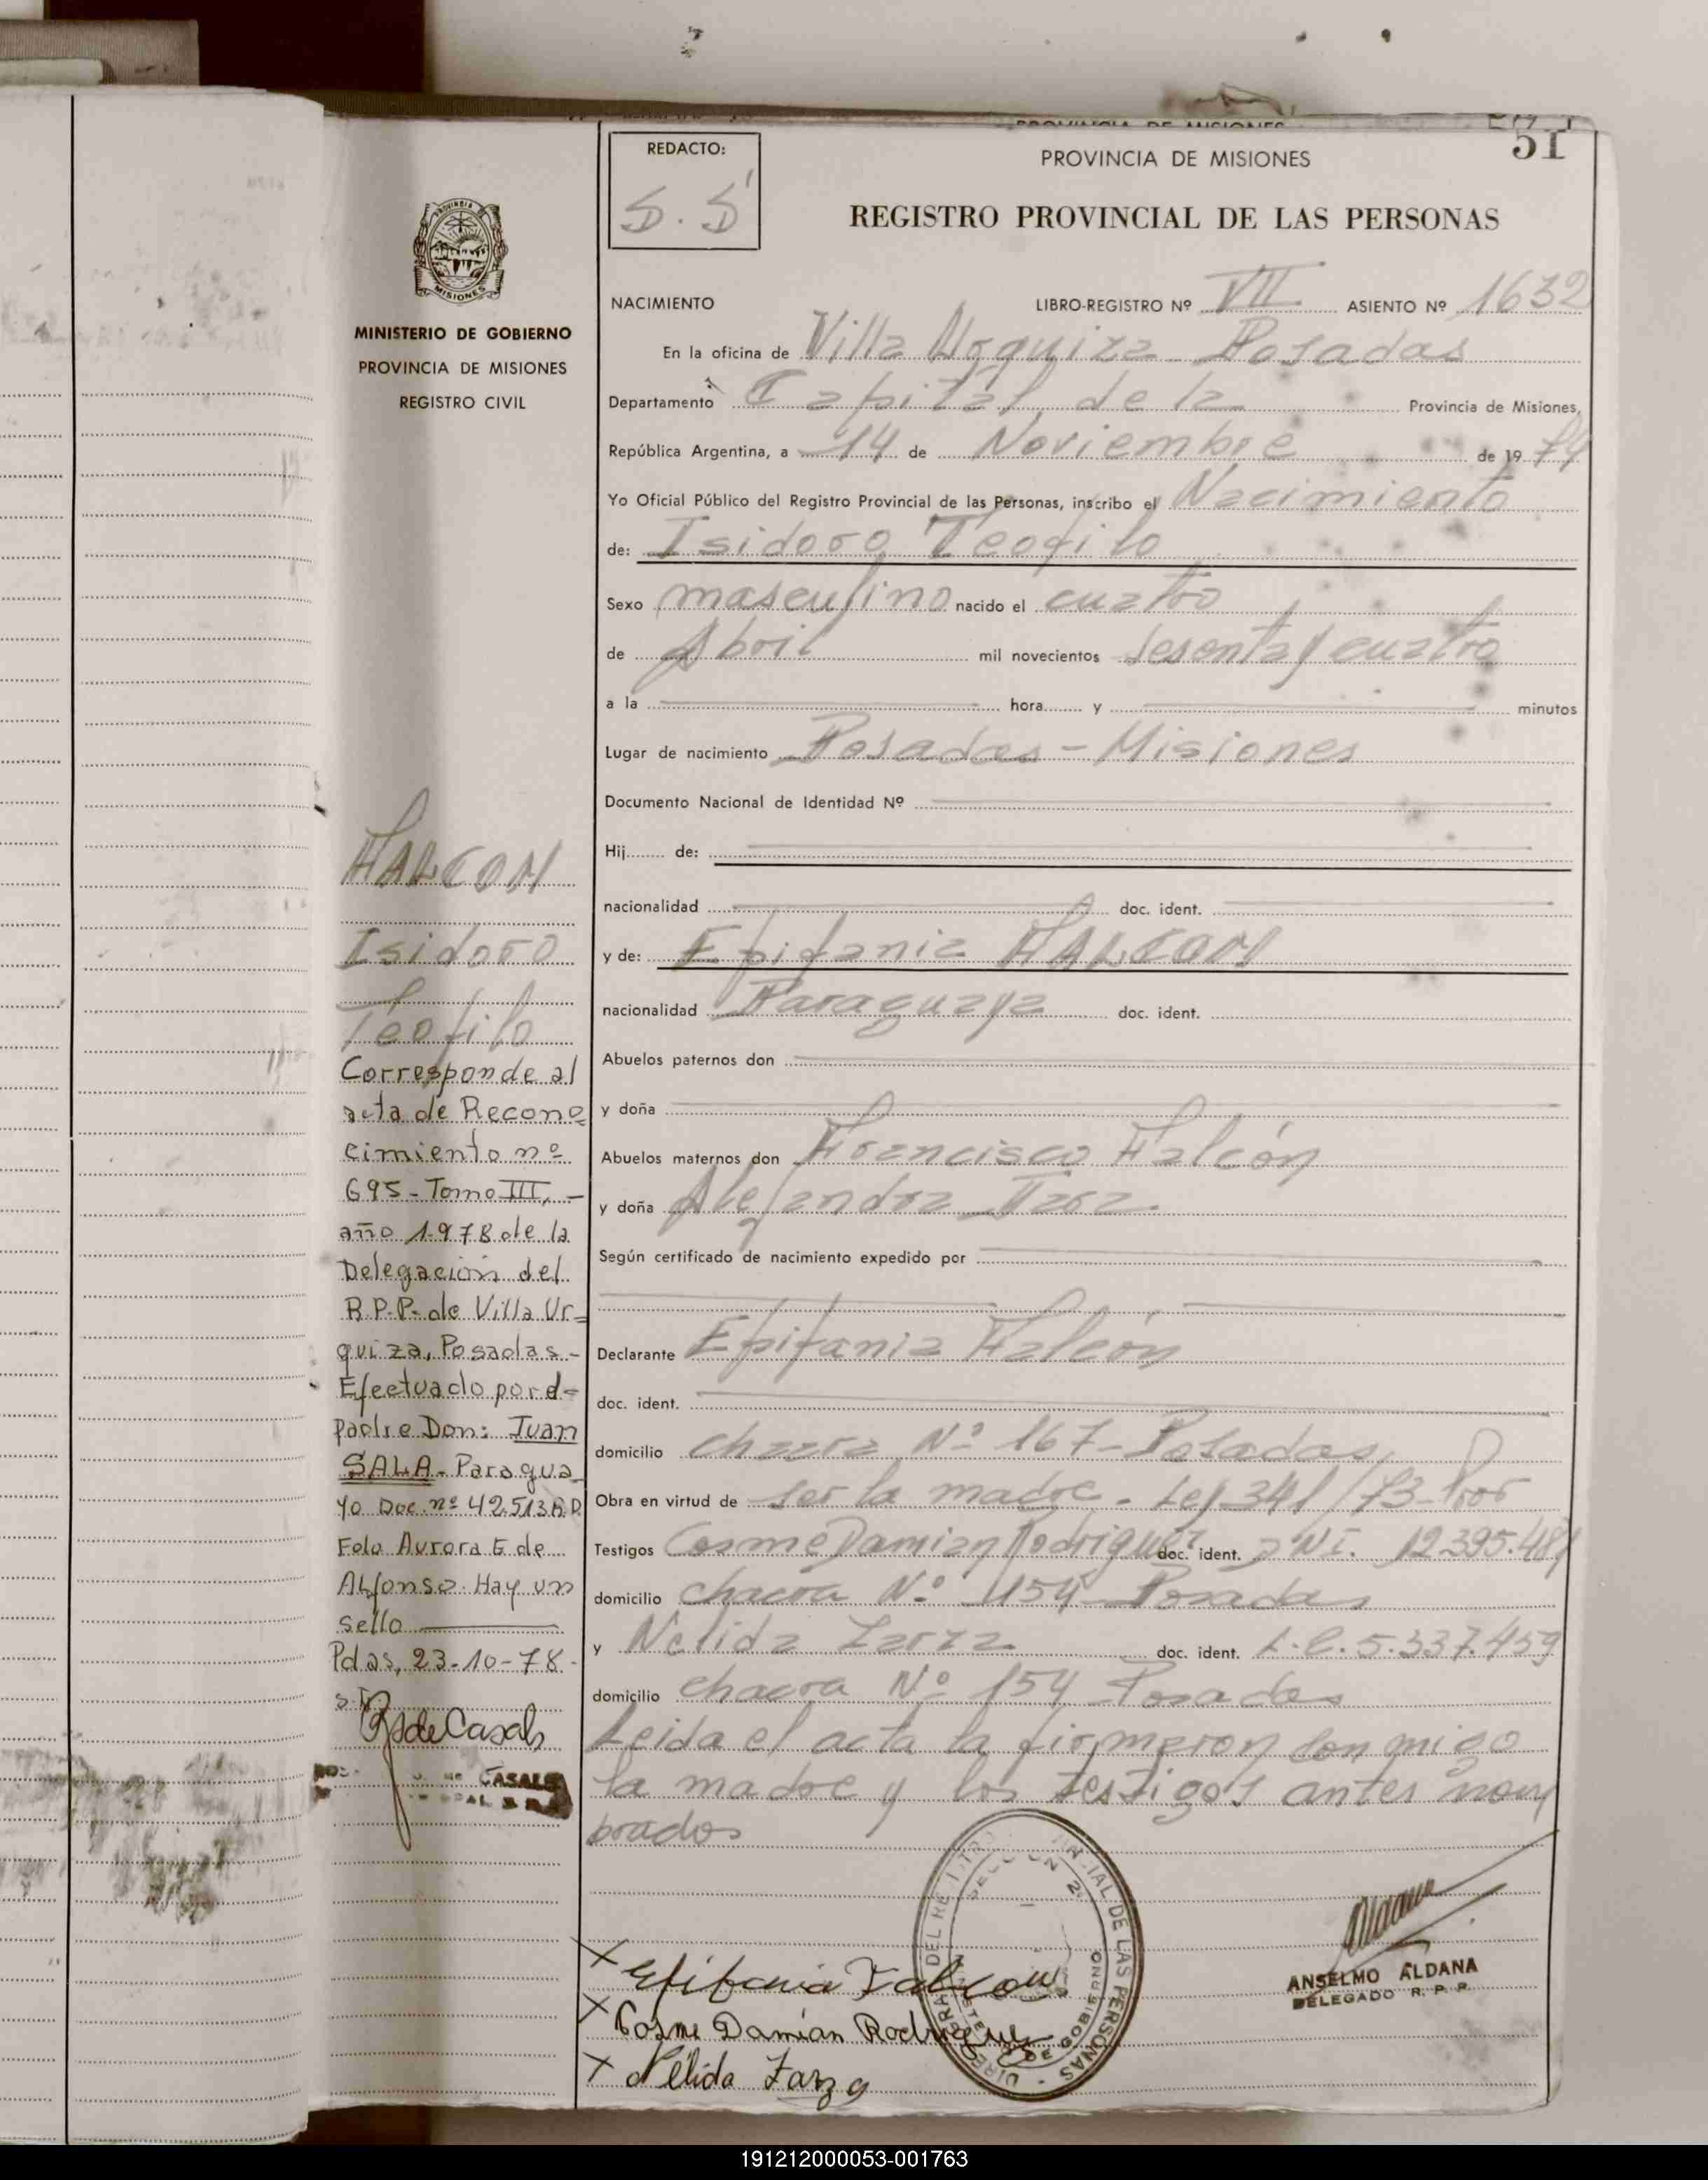 51
REDACTO:
S. S
PROVINCIA DE MISIONES
REGISTRO PROVINCIAL DE LAS PERSONAS
MINISTERIO DE GOBIERNO
PROVINCIA DE MISIONES
REGISTRO CIVIL
NACIMIENTO LIBRO-REGISTRO Nº VII ASIENTO Nº 1632
En la oficina de Villa Urquiza Posadas
Departamento Capital de la Provincia de Misiones,
República Argentina, a 14 de Noviembre de 1974
Yo Oficial Público del Registro Provincial de las Personas, inscribo el Nacimiento
de: Isidoro Teofilo
Sexo masculino nacido el cuatro
de Abril mil novecientos sesenta y cuatro
a la hora y minutos
Lugar de nacimiento Posadas - Misiones
Documento Nacional de Identidad Nº
Hij de:
nacionalidad doc. ident.
y de: Epifania FALCON
nacionalidad Paraguaya doc. ident.
Abuelos paternos don
y doña
Abuelos maternos don Francisco Falcón
y doña Alejandra
Según certificado de nacimiento expedido por
Declarante Epifania Falcón
doc. ident.
domicilio chacra Nº 167 - Posadas
Obra en virtud de ser la madre. Ley 341/73 - Por
Testigos Cosme Damian Rodriguez doc. ident. DNI. 12.395.481
domicilio chacra Nº 154 Posadas
y Nelida Zarza doc. ident. L.C. 5.337.459
domicilio chacra Nº 154 Posadas
Leida el acta la firmaron conmigo
la madre y los testigos antes nom
brados
FALCON
Isidoro
Teofilo
Corresponde al
acta de Recono
cimiento nº
695 - Tomo III, -
año 1.978 de la
Delegación del
R.P.P. de Villa Ur=
quiza, Posadas -
Efectuado por el
padre Don: Juan
SALA - Paragua
yo Doc. nº 42.513
Fdo Aurora E. de
Alfonso. Hay un
sello
Pdas, 23-10-78 -
de Casals
CASALS
Epifania Falcon
Cosme Damian Rodriguez
Nélida Zarza
ANSELMO ALDANA
DELEGADO R. P. P.
191212000053-001763